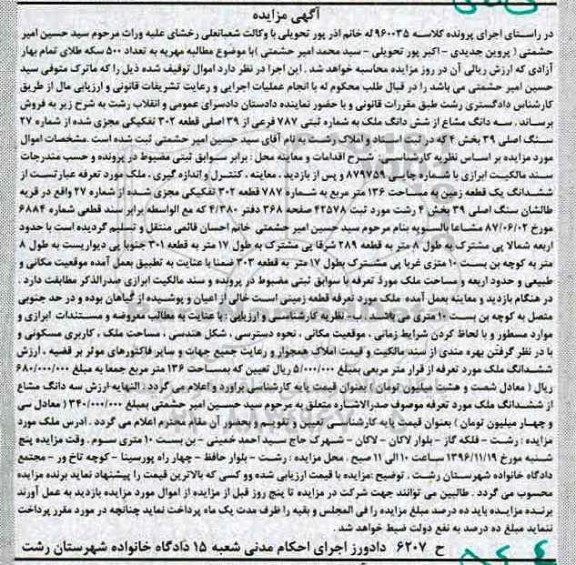 آگهی مزایده
در راستای اجرای پرونده کلاسه ۹۶۰۰۳۵ له خانم آذر پور تحویلی با وکالت شعبانعلی رخشای علیه وراث مرحوم سید حسین امیر
حشمتی ( پروین جدیدی - اکبر پور تحویلی - سید محمد امیر حشمتی )با موضوع مطالبه مهریه به تعداد ۵۰۰ سکه طلای تمام بهار
آزادی که ارزش ریالی آن در روز مزایده محاسبه خواهد شد . این اجرا در نظر دارد اموال توقیف شده ذیل را که ماترک متوفی سید
حسین امیر حشمتی می باشد را در قبال طلب محکوم له با انجام عملیات اجرایی و رعایت تشریفات قانونی و ارزیابی مال از طریق
کارشناس دادگستری رشت طبق مقررات قانونی و با حضور نماینده دادستان دادسرای عمومی و انقلاب رشت به شرح زیر به فروش
برساند . سه دانگ مشاع از شش دانگ ملک به شماره ثبتی ۷۸۷ فرعی از ۳۹ اصلی قطعه ۳۰۲ تفکیکی مجزی شده از شماره ۲۷
سنگ اصلی ۳۹ بخش ۴ که در ثبت اسناد و املاک رشت به نام آقای سید حسین امیر حشمتی ثبت شده است مشخصات اموال
مورد مزایده بر اساس نظریه کارشناسی: شرح اقدامات و معاینه محل : برابر سوابق ثبتی مضبوط در پرونده و حسب مندرجات
سند مالکیت ابرازی با شماره چاپی ۸۷۹۷۵۹ و پس از بازدید ، معاینه ، کنترل و اندازه گیری ، ملک مورد تعرفه عبارتست از
ششدانگ یک قطعه زمین به مساحت ۱۳۶ متر مربع به شماره ۷۸۷ قطعه ۳۰۲ تفکیکی مجزی شده از شماره ۲۷ واقع در قریه
طالشان سنگ اصلی ۳۹ بخش ۴ رشت مورد ثبت ۴۲۵۷۸ صفحه ۳۶۸ دفتر ۴/۳۸۰ که مع الواسطه برابر سند قطعی شماره ۶۸۸۴
مورخ ۸۷/۰۶/۰۲ مشاعا بالسویه بنام مرحوم سید حسین امیر حشتمی خانم احسان قائمی منتقل و تسلیم گردیده است با حدود
اربعه شمالا پی مشترک به طول ۸ متر به قطعه ۲۸۹ شرقا پی مشترک به طول ۱۷ متر به قطعه ۳۰۱ جنوبا پی دیواریست به طول ۸
متر به کوچه بن بست ۱۰ متری غربا پی مشترک بطول ۱۷ متر به قطعه ۳۰۳ ضمنا با عنایت به تطبیق بعمل آمده موقعیت مکانی و
طبیعی و حدود اربعه و مساحت ملک مورد تعرفه با سوابق ثبتی مضبوط در پرونده و سند مالکیت ابرازی صدرالذکر مطابقت دارد .
در هنگام بازدید و معاینه بعمل آمده ملک مورد تعرفه قطعه زمینی است خالی از اعیان و پوشیده از گیاهان بوده و در حد جنوبی
متصل به کوچه بن بست ۱۰ متری می باشد. ب- نظریه کارشناسی و ارزیابی : با عنایت به مطالب معروضه و مستندات ابرازی و
موارد مسطور و با لحاظ کردن شرایط زمانی ، موقعیت مکانی ، نحوه دسترسی ، شکل هندسی ، مساحت ملک ، کاربری مسکونی و
با در نظر گرفتن بهره مندی از سند مالکیت و قیمت املاک همجوار و رعایت جمیع جهات و سایر فاکتورهای موثر بر قضیه ، ارزش
ششدانگ ملک مورد تعرفه از قرار متر مربعی بمبلغ ۵/۰۰۰/۰۰۰ ریال تعیین که بمساحت ۱۳۶ متر مربع جمعا به مبلغ ۶۸۰/۰۰۰/۰۰۰
ریال ( معادل شصت و هشت میلیون تومان ) بعنوان قیمت پایه کارشناسی براورد و اعلام می گردد . النهایه ارزش سه دانگ مشاع
از ششدانگ ملک مورد تعرفه موصوف صدرالاشاره متعلق به مرحوم سید حسین امیر حشمتی بمبلغ ۳۴۰/۰۰۰/۰۰۰ ( معادل سی
و چهار میلیون تومان ) بعنوان قیمت پایه کارشناسی تعیین و تقویم و بحضور آن مقام محترم اعلام می گردد . آدرس ملک مورد
مزایده : رشت - فلکه گاز - بلوار لاکان - لاکان - شهرک حاج سید احمد خمینی - بن بست ۱۰ متری سوم . وقت مزایده پنج
شنبه مورخ ۱۳۹۶/۱۱/۱۹ ساعت ۱۰ الی ۱۱ صبح . محل مزایده : رشت - بلوار حافظ - چهار راه پورسینا - کوچه تاخ ور - مجتمع
دادگاه خانواده شهرستان رشت . توضیح :مزایده با قیمت ارزیابی شده وو کسی که بالاترین قیمت را پیشنهاد نماید برنده مزایده
محسوب می گردد . طالبین می توانند جهت شرکت در مزایده تا پنج روز قبل از مزایده از اموال مورد مزایده بازدید به عمل آورند
برنده مزایده باید ده درصد مبلغ مزایده را فی المجلس و بقیه را ظرف مدت یک ماه پرداخت نماید چنانچه در موعد مقرر پرداخت
ننماید مبلغ ده درصد به نفع دولت ضبط خواهد شد.
ح ۶۲۰۷ دادورز اجرای احکام مدنی شعبه ۱۵ دادگاه خانواده شهرستان رشت